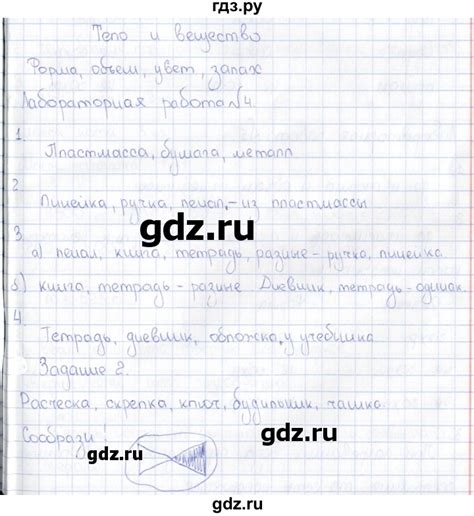 гдз.ру
Тело и вещество
Форма, объем, цвет, запах
Лабораторная работа №4.
1.
Пластмасса, бумага, металл
2
Линейка, ручка, пенал,-из пластмассы
gdz.ru
3.
а) пенал, книга, тетрадь, разные - ручка, линейка.
б) книга, тетрадь - разные Дневник, тетрадь - одинак.
4.
Тетрадь, дневник, обложка, у учебника
Задание 2.
Расческа, скрепка, ключ, будильник, чашка.
Сообрази!
gdz.ru
gdz.ru